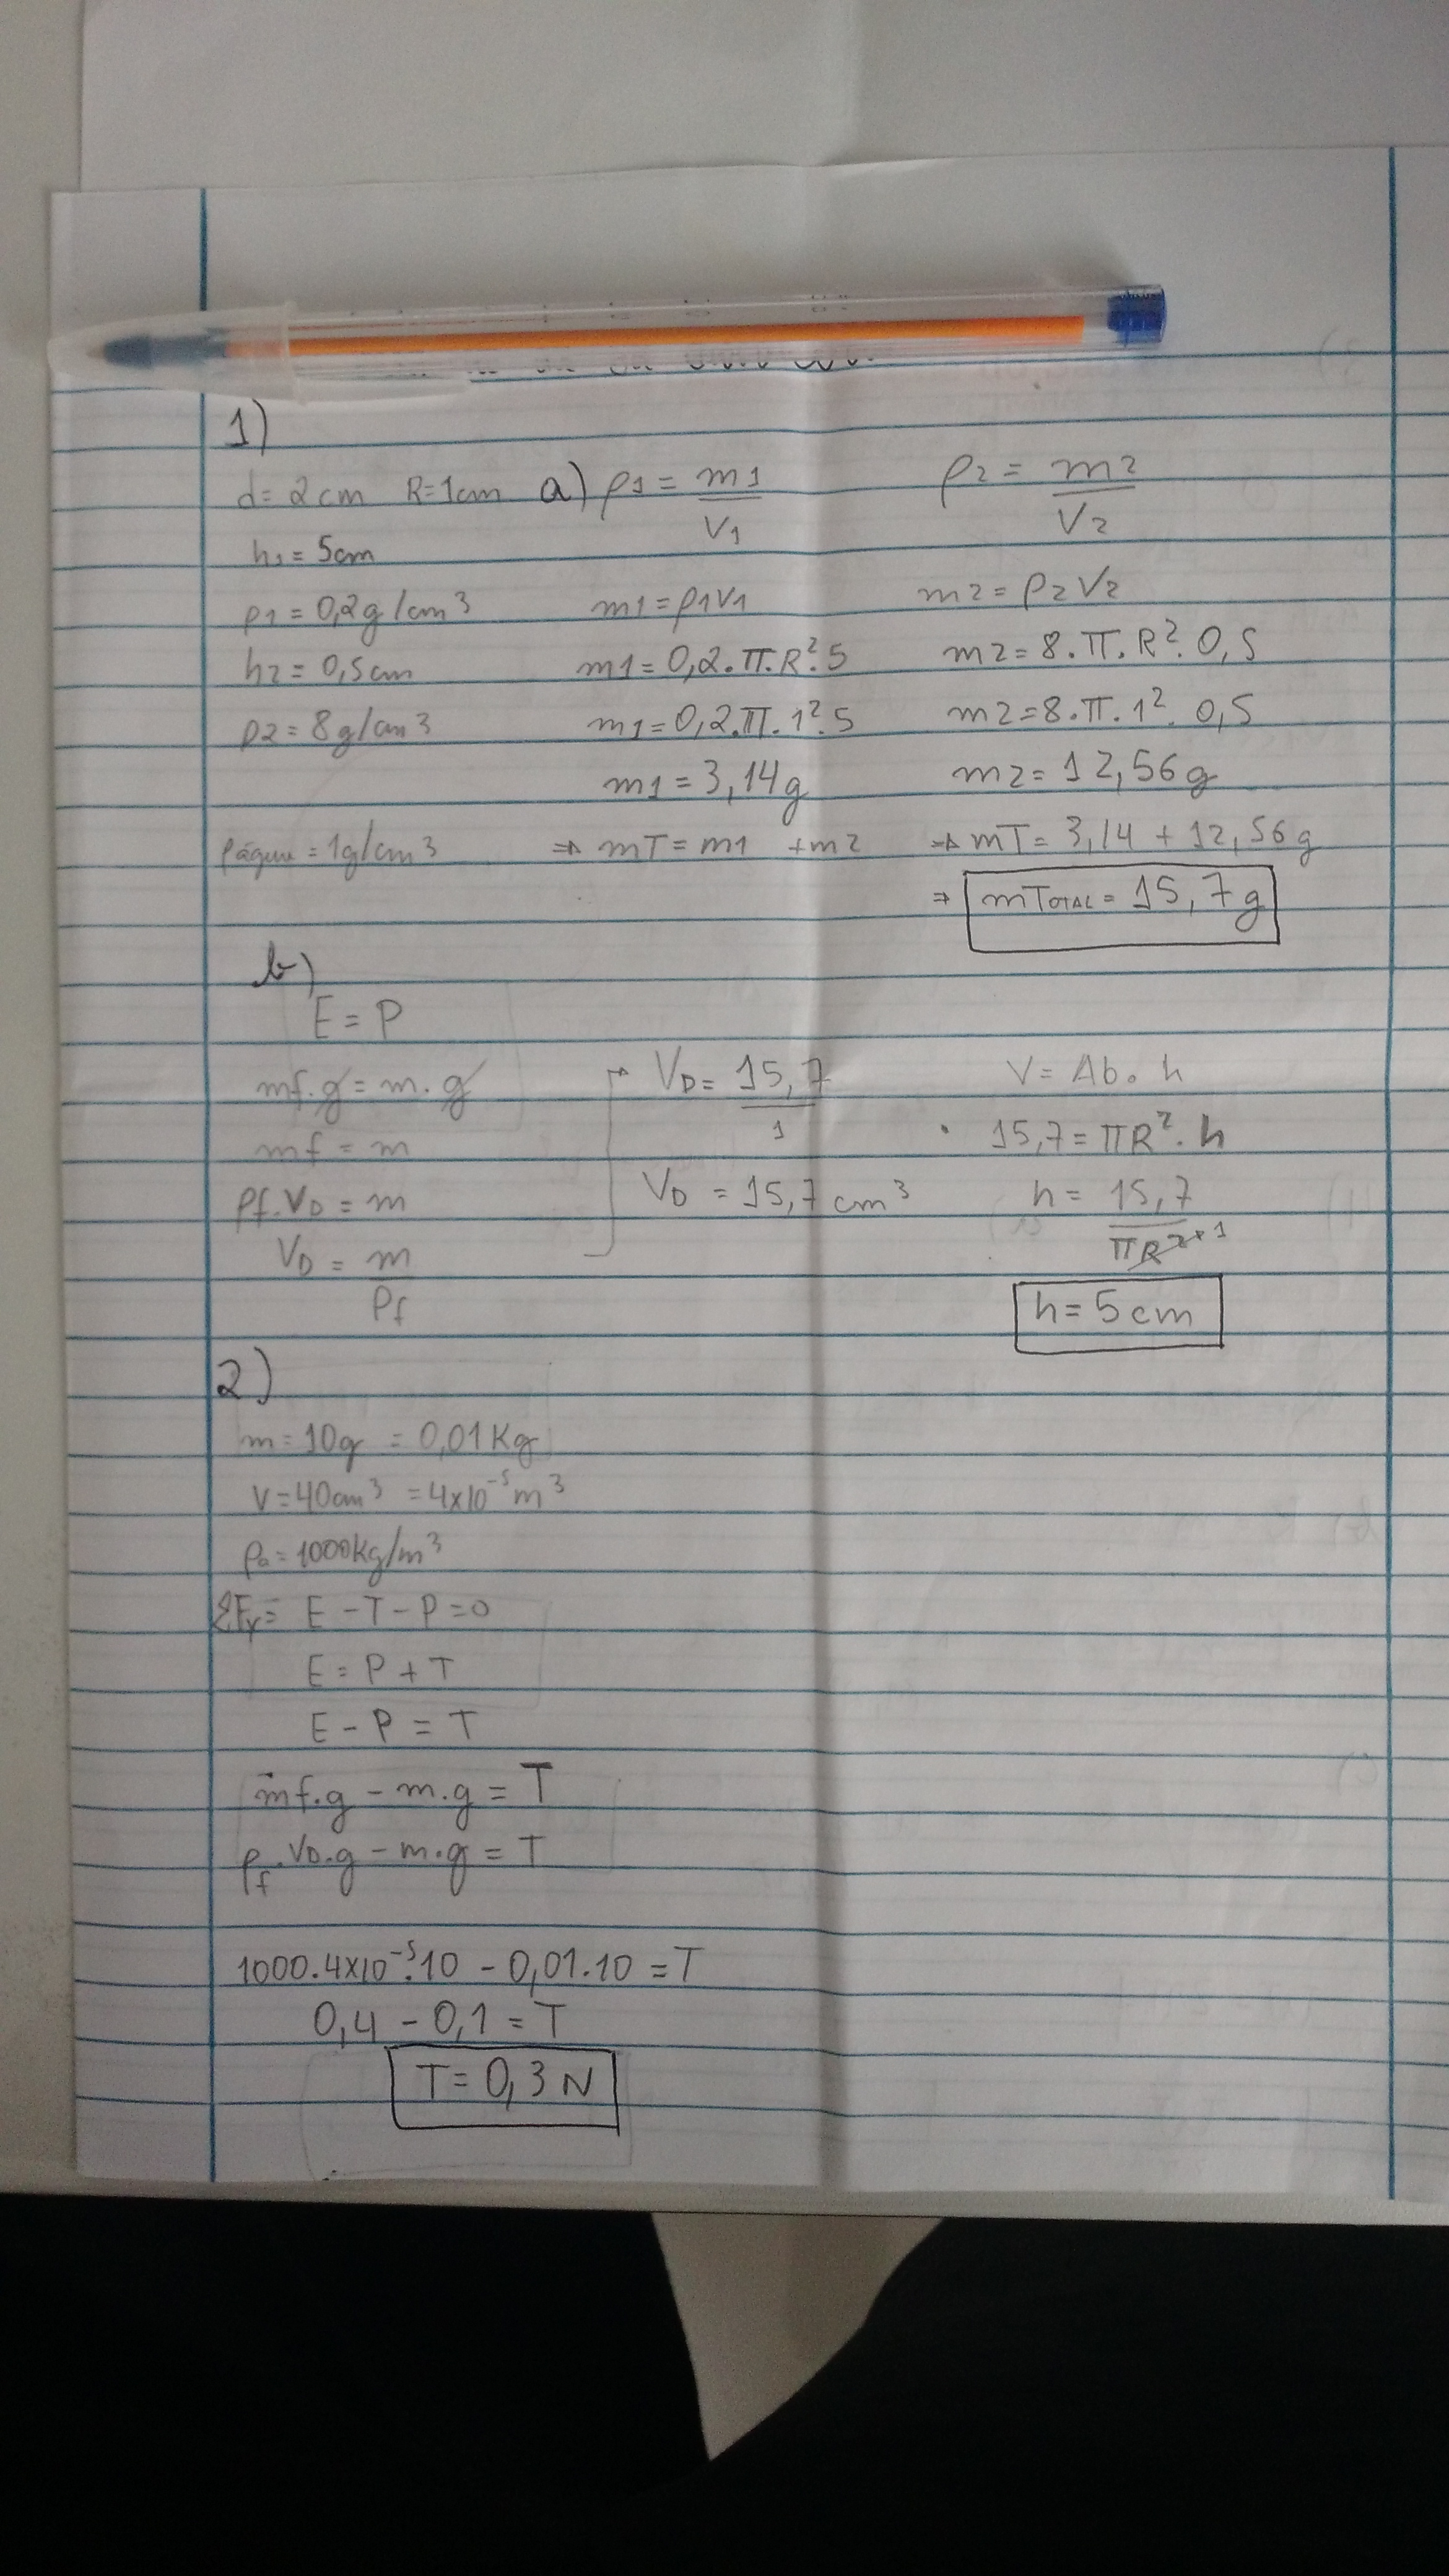 1)
d= 2cm R=1cm a) ρ1 = m1/V1 ρ2 = m2/V2
h1 = 5cm
ρ1 = 0,2g/cm³ m1 = ρ1V1 m2 = ρ2V2
h2 = 0,5cm m1 = 0,2.π.R².5 m2 = 8.π.R².0,5
ρ2 = 8g/cm³ m1 = 0,2.π.1².5 m2 = 8.π.1².0,5
m1 = 3,14g m2 = 12,56g
ρágua = 1g/cm³ ⇒ mT = m1 + m2 ⇒ mT = 3,14 + 12,56g
⇒ mTOTAL = 15,7g
b)
E = P
mf.g = m.g
mf = m
ρf.VD = m
VD = m/ρf
VD = 15,7/1
VD = 15,7cm³
V = Ab.h
15,7 = πR².h
h = 15,7/πR² 1
h = 5cm
2)
m = 10g = 0,01Kg
V = 40cm³ = 4x10⁻⁵m³
ρa = 1000Kg/m³
ΣFy = E - T - P = 0
E = P + T
E - P = T
mf.g - m.g = T
ρf.VD.g - m.g = T
1000.4x10⁻⁵.10 - 0,01.10 = T
0,4 - 0,1 = T
T = 0,3N